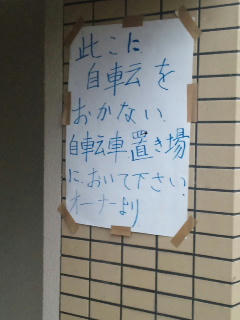 此こに
自転を
おかない
自転車置き場
に、おいて下さい
オーナーより